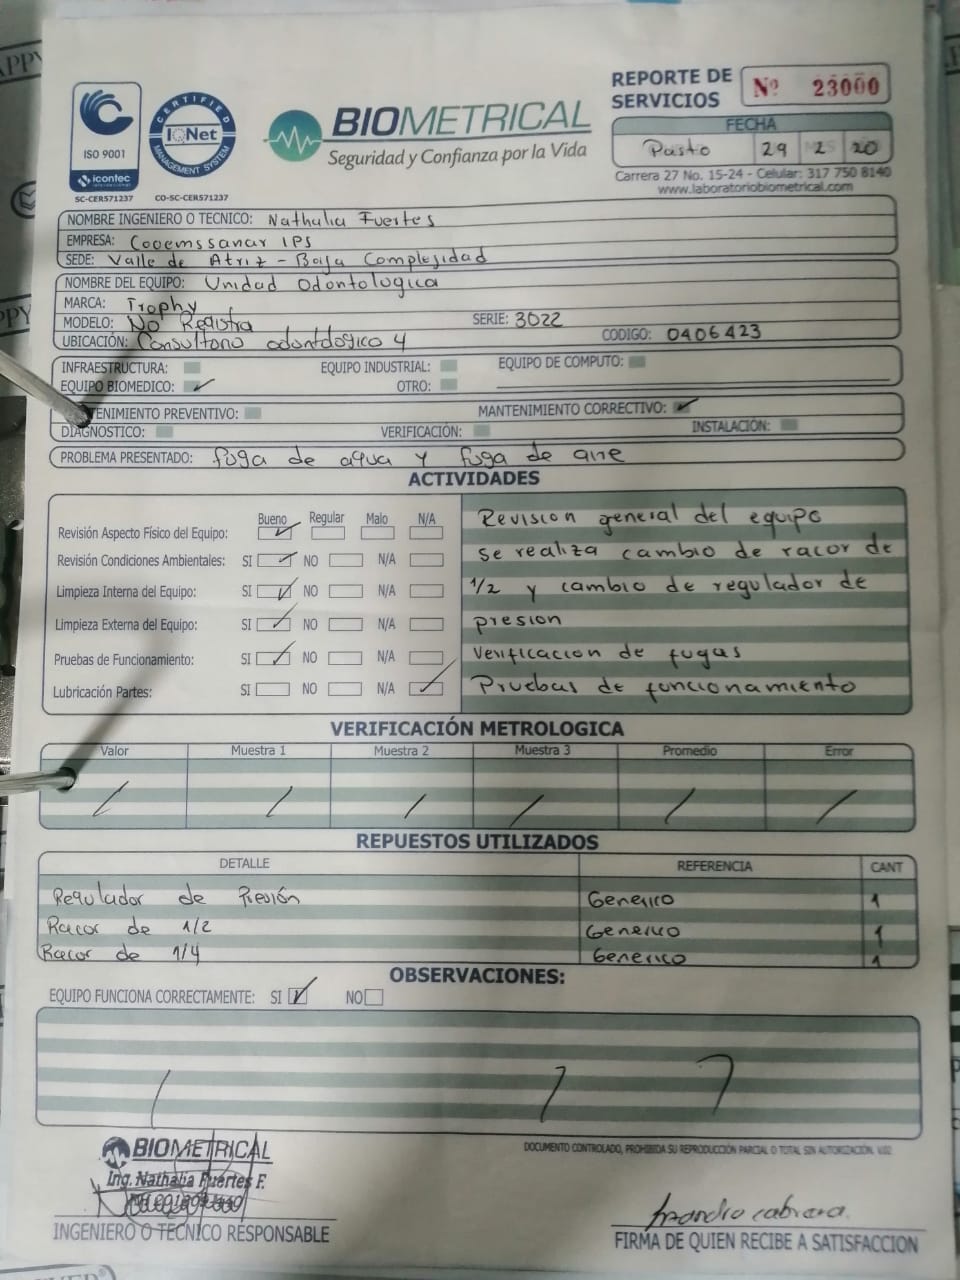 REPORTE DE
SERVICIOS
Nº 23000
FECHA
Pasto 29 2 20
Carrera 27 No. 15-24 - Celular: 317 750 8140
www.laboratoriobiometrical.com
ISO 9001
icontec
internacional
SC-CER571237
CERTIFIED
IQNet
MANAGEMENT SYSTEM
CO-SC-CER571237
BIOMETRICAL
Seguridad y Confianza por la Vida
NOMBRE INGENIERO O TECNICO: Nathalia Fuertes
EMPRESA: Cooemssanar IPS
SEDE: Valle de Atriz - Baja Complejidad
NOMBRE DEL EQUIPO: Unidad Odontologica
MARCA: Trophy
MODELO: No Registra SERIE: 3022
UBICACIÓN: Consultorio odontologico 4 CODIGO: 0406423
INFRAESTRUCTURA: EQUIPO INDUSTRIAL: EQUIPO DE COMPUTO:
EQUIPO BIOMEDICO: ✓ OTRO:
TENIMIENTO PREVENTIVO: MANTENIMIENTO CORRECTIVO: ✓
DIAGNOSTICO: VERIFICACIÓN: INSTALACIÓN:
PROBLEMA PRESENTADO: fuga de agua y fuga de aire
ACTIVIDADES
Bueno Regular Malo N/A
Revisión Aspecto Físico del Equipo: ✓
Revisión Condiciones Ambientales: SI ✓ NO N/A
Limpieza Interna del Equipo: SI ✓ NO N/A
Limpieza Externa del Equipo: SI ✓ NO N/A
Pruebas de Funcionamiento: SI ✓ NO N/A
Lubricación Partes: SI NO N/A ✓
Revision general del equipo
se realiza cambio de racor de
1/2 y cambio de regulador de
presion
Verificacion de fugas
Pruebas de funcionamiento
VERIFICACIÓN METROLOGICA
Valor Muestra 1 Muestra 2 Muestra 3 Promedio Error
/ / / / / /
REPUESTOS UTILIZADOS
DETALLE REFERENCIA CANT
Regulador de Presión Generico 1
Racor de 1/2 Generico 1
Racor de 1/4 Generico 1
OBSERVACIONES:
EQUIPO FUNCIONA CORRECTAMENTE: SI ✓ NO
DOCUMENTO CONTROLADO, PROHIBIDA SU REPRODUCCIÓN PARCIAL O TOTAL SIN AUTORIZACIÓN. V.02
BIOMETRICAL
Ing. Nathalia Fuertes F.
INGENIERO O TECNICO RESPONSABLE
cabrera.
FIRMA DE QUIEN RECIBE A SATISFACCION